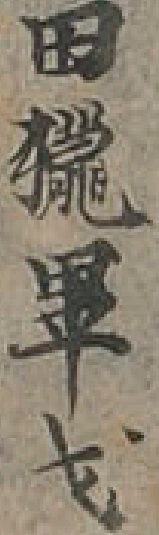 田獵畢弋